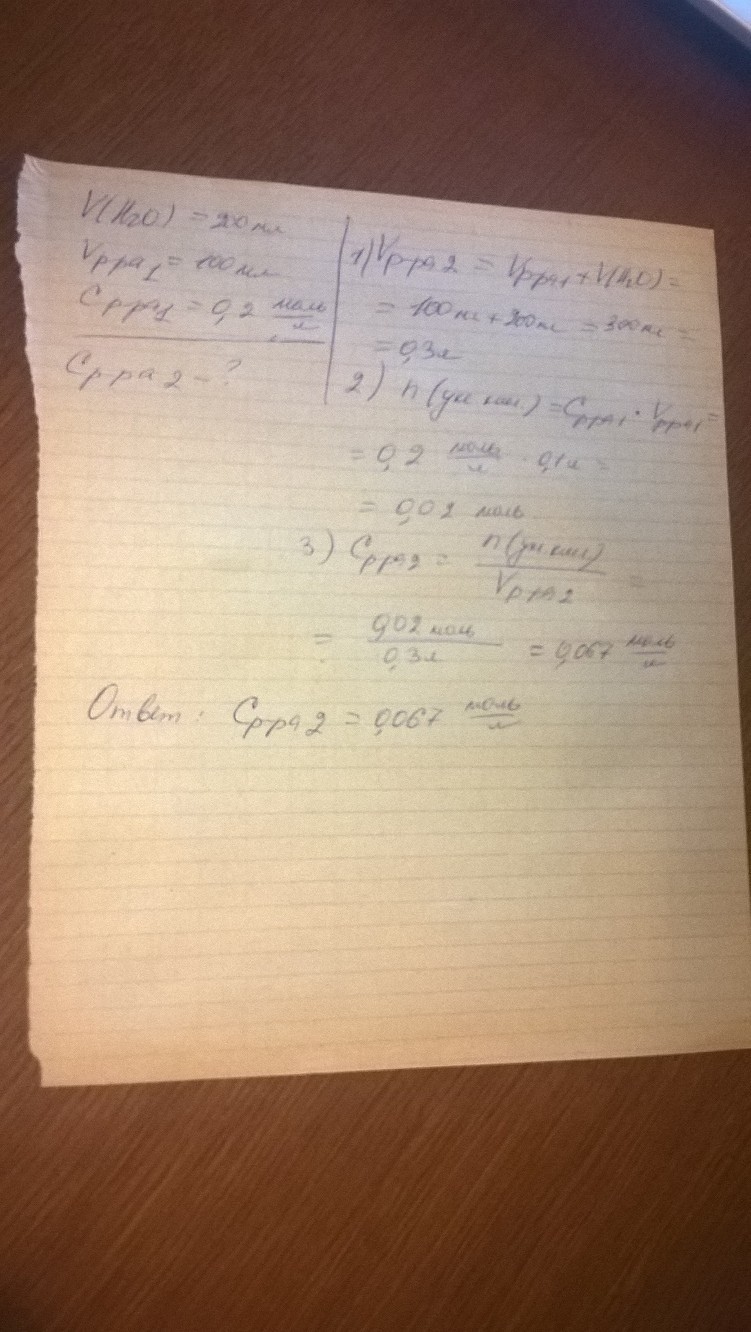 V(H₂O) = 200 мл
Vр-ра₁ = 100 мл
Cр-ра₁ = 0,2 моль/л
Cр-ра 2 - ?
1) Vр-ра 2 = Vр-ра₁ + V(H₂O) =
= 100 мл + 200 мл = 300 мл =
= 0,3 л
2) n (укс кис.) = Cр-ра₁ · Vр-ра₁ =
= 0,2 моль/л · 0,1 л =
= 0,02 моль
3) Cр-ра 2 = n(укс кис)/Vр-ра 2 =
= 0,02 моль/0,3 л = 0,067 моль/л
Ответ: Cр-ра 2 = 0,067 моль/л